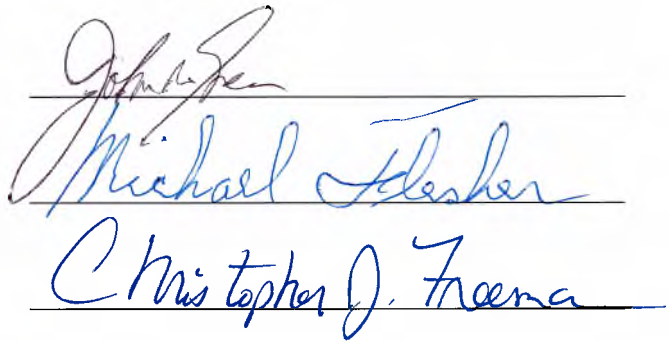 John
Michael Flesher
Christopher J. Freema